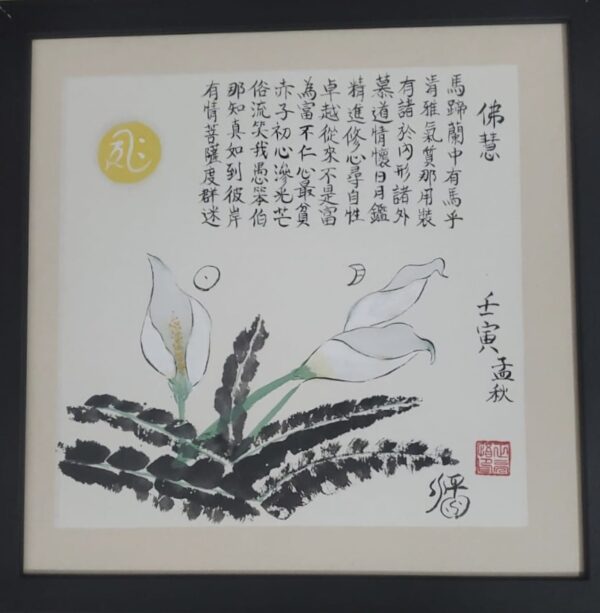 佛慧
馬蹄蘭中有馬乎
清雅氣質那用裝
有諸於內形諸外
慕道情懷日月鑑
精進修心尋自性
卓越從來不是富
為富不仁心最貧
赤子初心滲光芒
俗流笑我愚笨伯
那知真如到彼岸
有情菩薩度群迷
壬寅孟秋